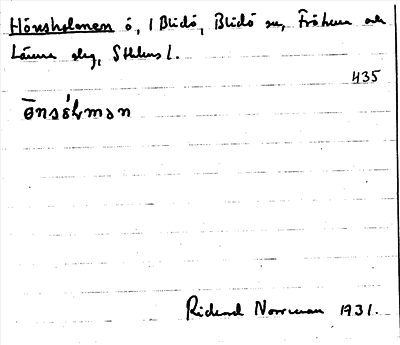 Hönsholmen ö, i Blidö, Blidö sn, Fröhem och
Länna slg, Sthlms l.
435
Richard Norrman 1931.